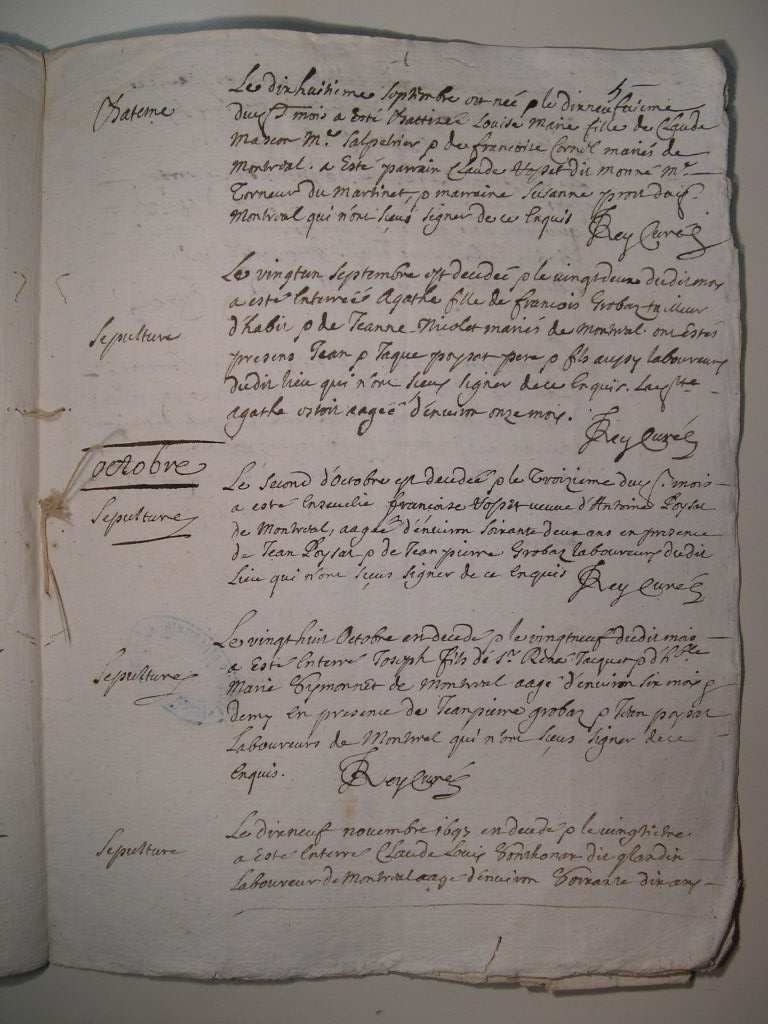 Bateme
Le dixhuitieme Septembre est née & le dixneufvieme
dud.t mois a esté Battizée Louise Marie fille de Claude
Masson M.e Salpetrier & de francoise Cornil mariés de
Montreal. a esté parrain Claude dit monne M.e
Torneur du Martinet, & marraine Susanne dud.
Montreal qui n'ont sçeus signer de ce Enquis Rey Curé
Sepulture
Le vingtun Septembre est decedeé & le vingtdeux dudit mois
a esté Interreés Agathe fille de francois Grobaz tailleur
d'habit & de Jeanne Nicolet mariés de Montreal. ont Estés
presens Jean & Jaque poysat pere & fils aussy laboureurs
dudit lieu qui n'ont sçeus signer de ce Enquis. Lad.te
agathe estoit aageé d'environ onze mois.
Rey Curé
octobre
Sepulture
Le second d'Octobre est decedeé & le Troizieme du mois
a este Ensevelie francoise veuve d'Antoine Poysat
de Montreal, aageé d'environ soixante deux ans en presence
de Jean Poysat & de Jean pierre Grobaz laboureurs dudit
lieu qui n'ont sçeus signer de ce Enquis Rey Curé
Sepulture
Le vingthuit Octobre est decedé & le vingtneuf dudit mois
a Esté Interré Joseph fils de S.r Réné Jacquet & d'h.ble
Marie de Montreal aagé d'environ six mois &
demy En presence de Jeanpierre grobaz & Jean poysat
Laboureurs de Montreal qui n'ont sçeus signer de ce
Enquis. Rey Curé
Sepulture
Le dixneuf novembre 1693 est decedé & le vingtieme
a Esté Interré Claude Louis dit glandin
Laboureur de Montreal aagé d'environ soixante dix ans